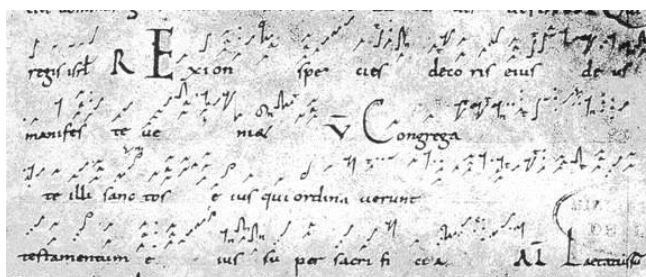 regis isrl R E xion spe cies deco ris eius de us
manifes te ue V Congrega
te illi sanc tos e ius qui ordina uerunt
testamentum e ius su per sacri fi cia Al Laetatus